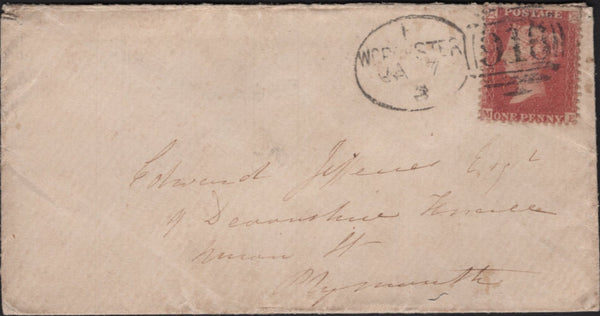 F
WORCESTER
JA 7
918
POSTAGE
ONE PENNY
M E
Edward Jefferies Esqr
9 Devonshire Terrace
Union St
Plymouth